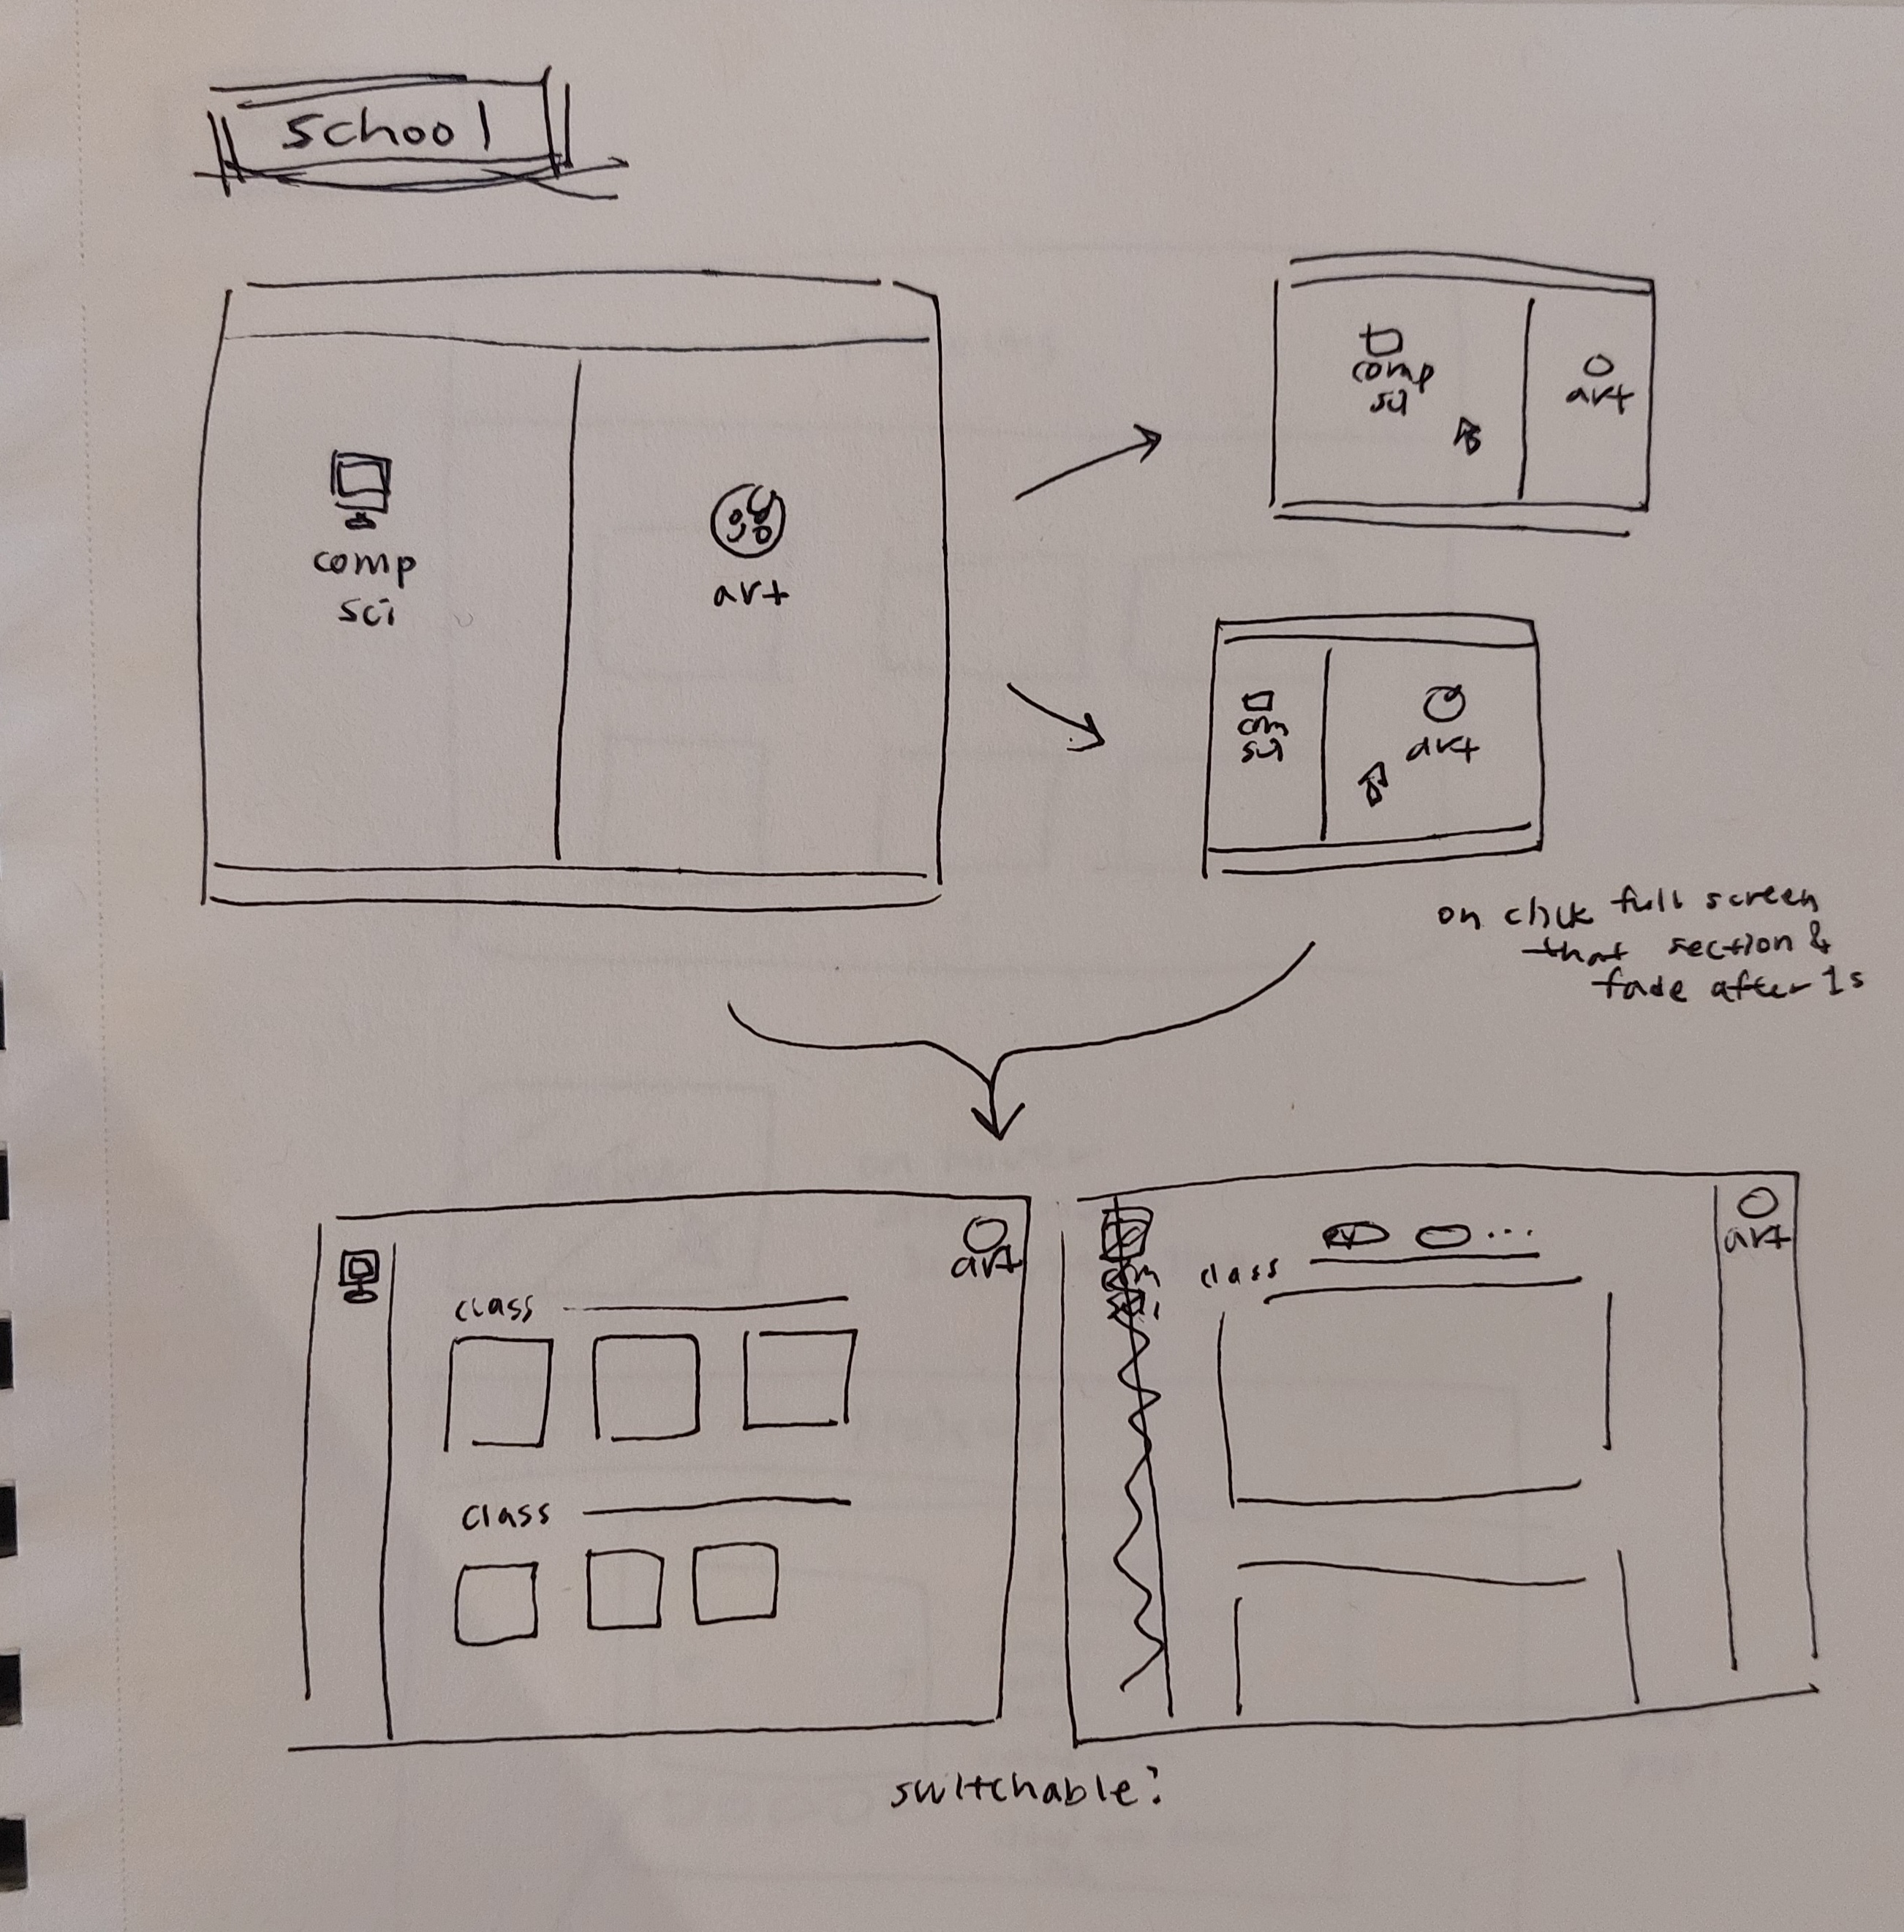 school
comp
sci
art
comp
sci
art
com
sci
art
on click full screen
that section &
fade after 1s
art
class
class
class
...
art
switchable?